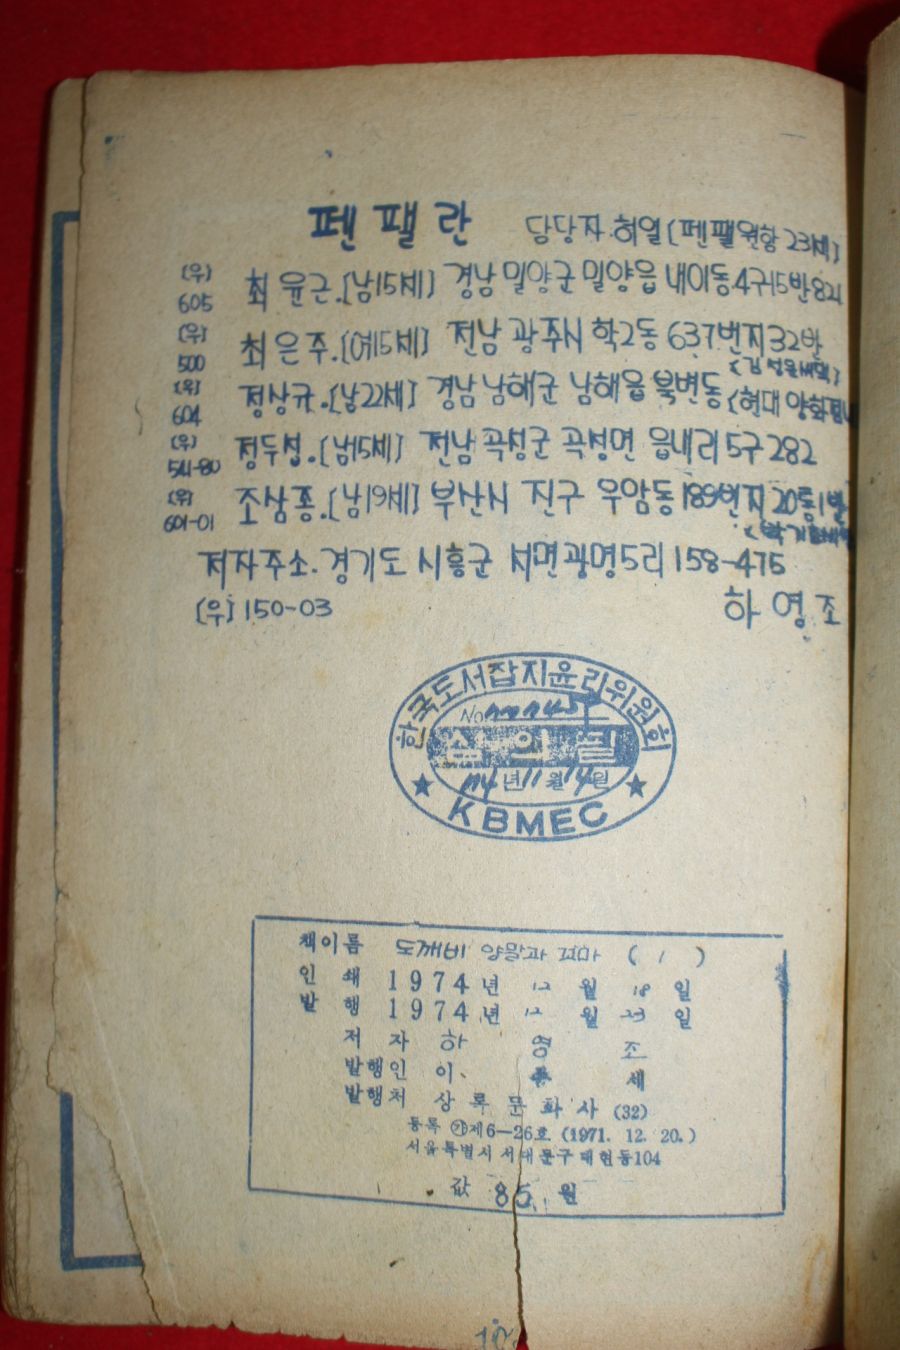 펜팰란 담당자.허열[펜팰원함23세]
(우) 605 최윤근.[남15세] 경남밀양군밀양읍내이동4구15반821
(우) 500 최은주.[여15세] 전남광주시학2동637번지32반
(우) 604 정상규.[남22세] 경남남해군남해읍북변동<현대양화점내
(우) 541-80 정두성.[남15세] 전남곡성군곡성면읍내리5구282
(우) 601-01 조삼종.[남19세] 부산시진구우암동189번지20통1반
저자주소.경기도시흥군서면광명5리158-475
(우)150-03 하영조
한국도서잡지윤리위원회
No
심의필
74년11월14일
KBMEC
책이름 도깨비양말과꼬마 (1)
인쇄 1974년 12월 18일
발행 1974년 12월 23일
저자 하영조
발행인 이 세
발행처 상록문화사 (32)
등록 ㉮제6-26호 (1971. 12. 20.)
서울특별시 서대문구 대현동104
값 85.원